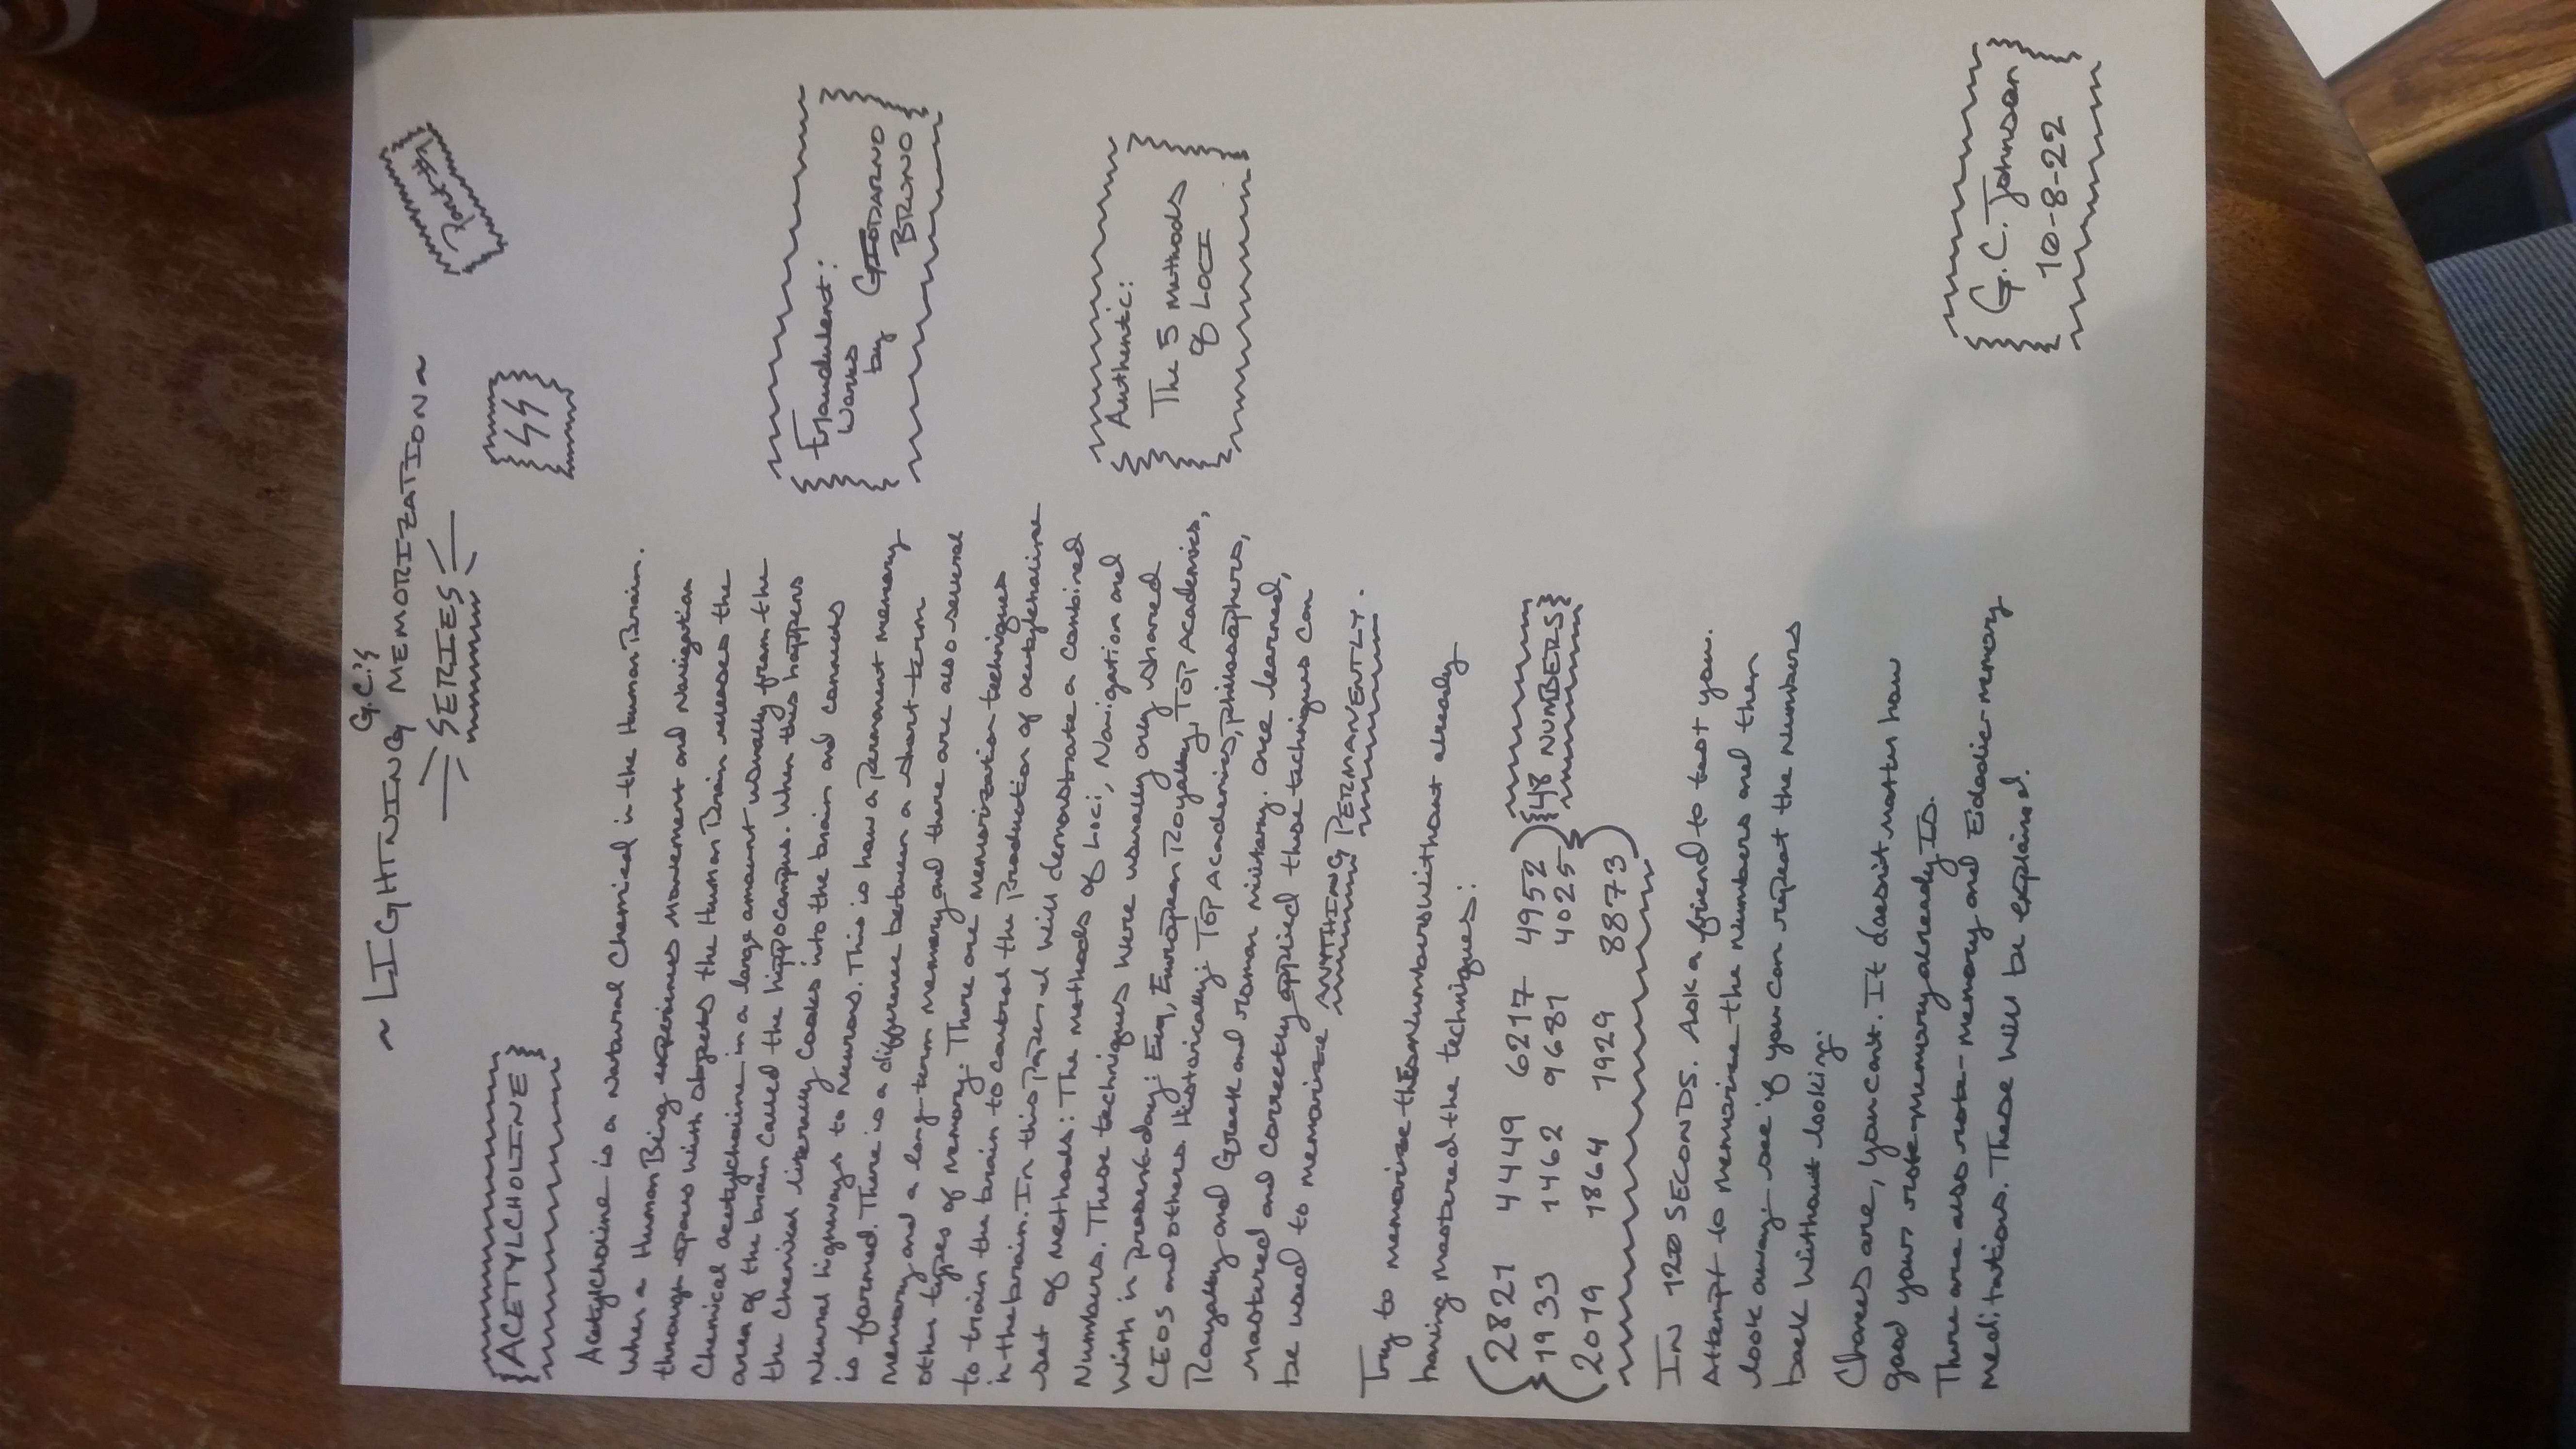 G.C.'s
~LIGHTNING MEMORIZATION~
SERIES
Part #1
ACETYLCHOLINE
Acetylcholine is a Natural Chemical in the Human Brain.
When a Human Being experiences Movement and Navigation
through spaces with objects the Human Brain releases the
Chemical acetylcholine in a large amount usually from the
area of the brain called the hippocampus. When this happens
the Chemical literally Cooks into the brain and connects
Neural highways to Neurons. This is how a Permanent memory
is formed. There is a difference between a short-term
memory and a long-term memory and there are also several
other types of memory. There are memorization techniques
to train the brain to control the Production of acetylcholine
in the brain. In this Paper I will demonstrate a combined
set of Methods: The Methods of Loci, Navigation and
Numbers. These techniques were usually only shared
With in present-day: European Royalty, TOP Academics,
CEOS and others. Historically: TOP Academics, philosophers,
Royalty and Greek and roman military. Once learned,
Mastered and correctly applied these techniques can
be used to memorize ANYTHING PERMANENTLY.
Try to memorize these Numbers Without already
having Mastered the techniques:
2821 4449 6217 4952
1933 1462 9681 4025
2019 1864 1929 8873
48 NUMBERS
IN 120 SECONDS. Ask a friend to test you.
Attempt to memorize the Numbers and then
look away. see if you can repeat the Numbers
back Without looking.
Chances are, you can't. It doesn't matter how
good your rote-memory already Is.
There are also rote-memory and Eidadic-memory
meditations. These will be explained.
Fraudulent:
Works
by GIODARNO
BRUNO
Authentic:
The 5 Methods
of LOCI
G.C. Johnson
10-8-22